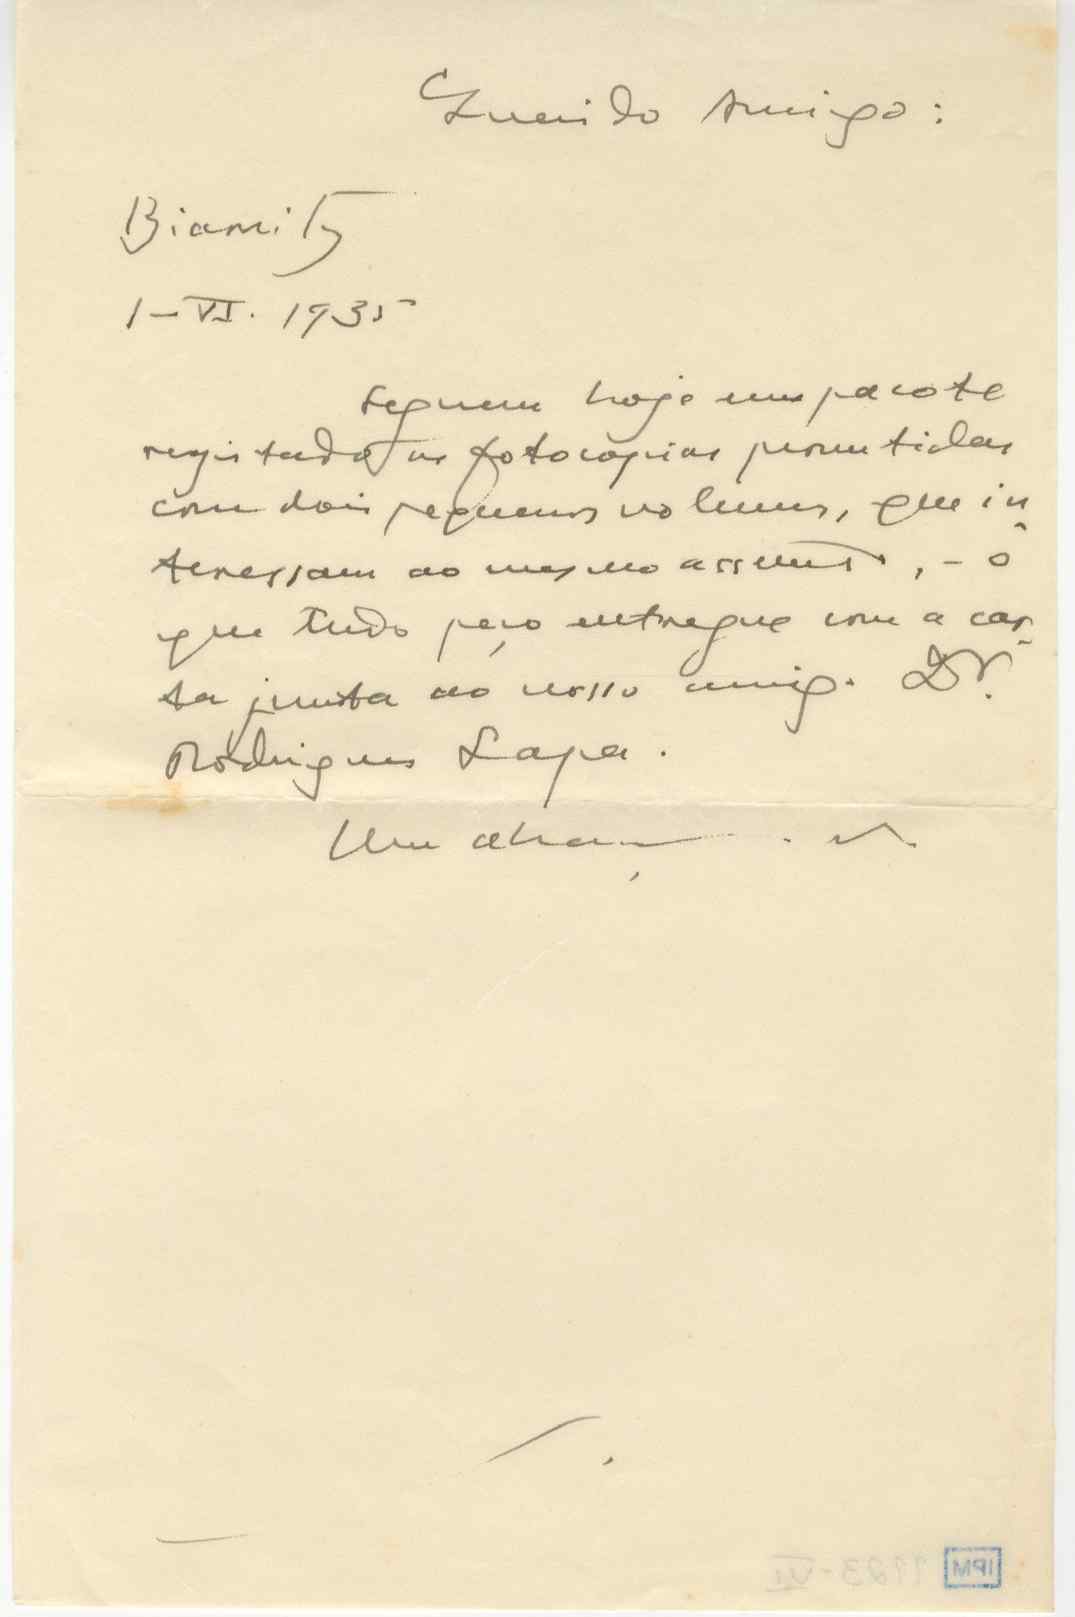 Querido Amigo:
Biarritz
1-VI. 1935
Seguem hoje em pacote
registado as fotocopias prometidas
com dois pequenos volumes, que in
teressam ao mesmo assunto, - o
que tudo peço entregue com a car-
ta junta ao nosso amigo Dr.
Rodrigues Lapa.
Um abraço
1193-VI IPM